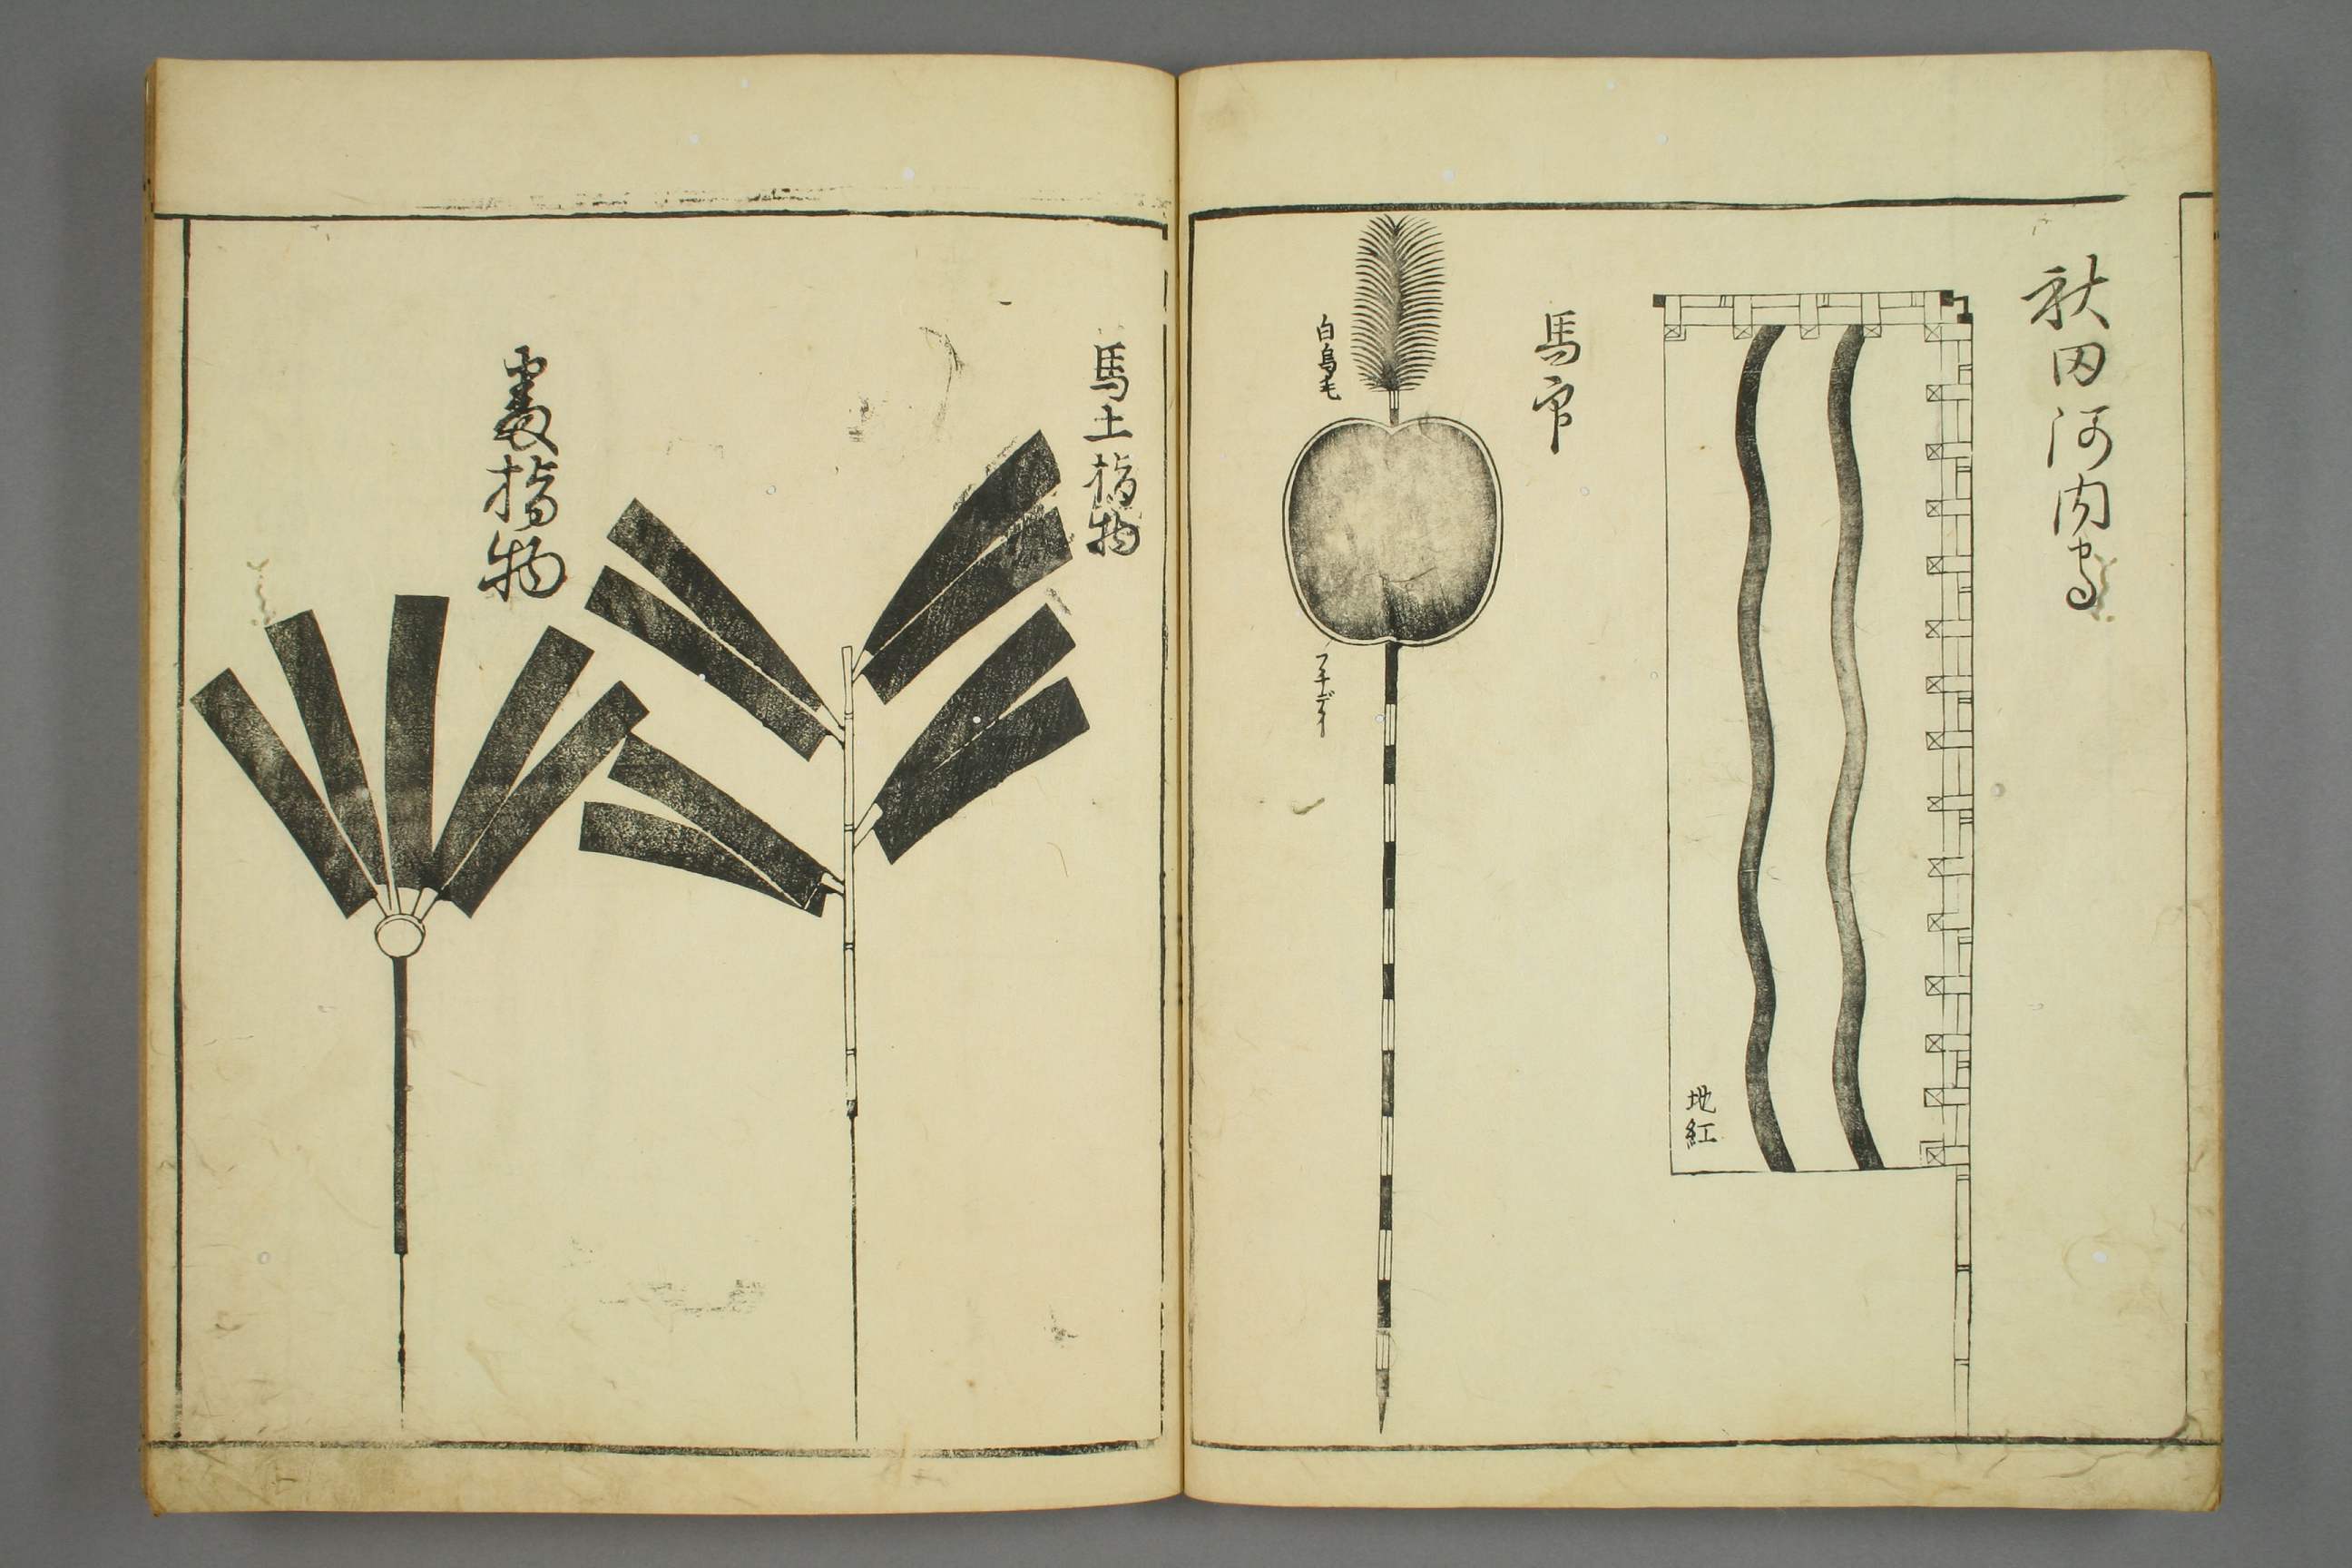 秋田河内守
地紅
馬印
白鳥毛
フチデイ
馬土指物
指物